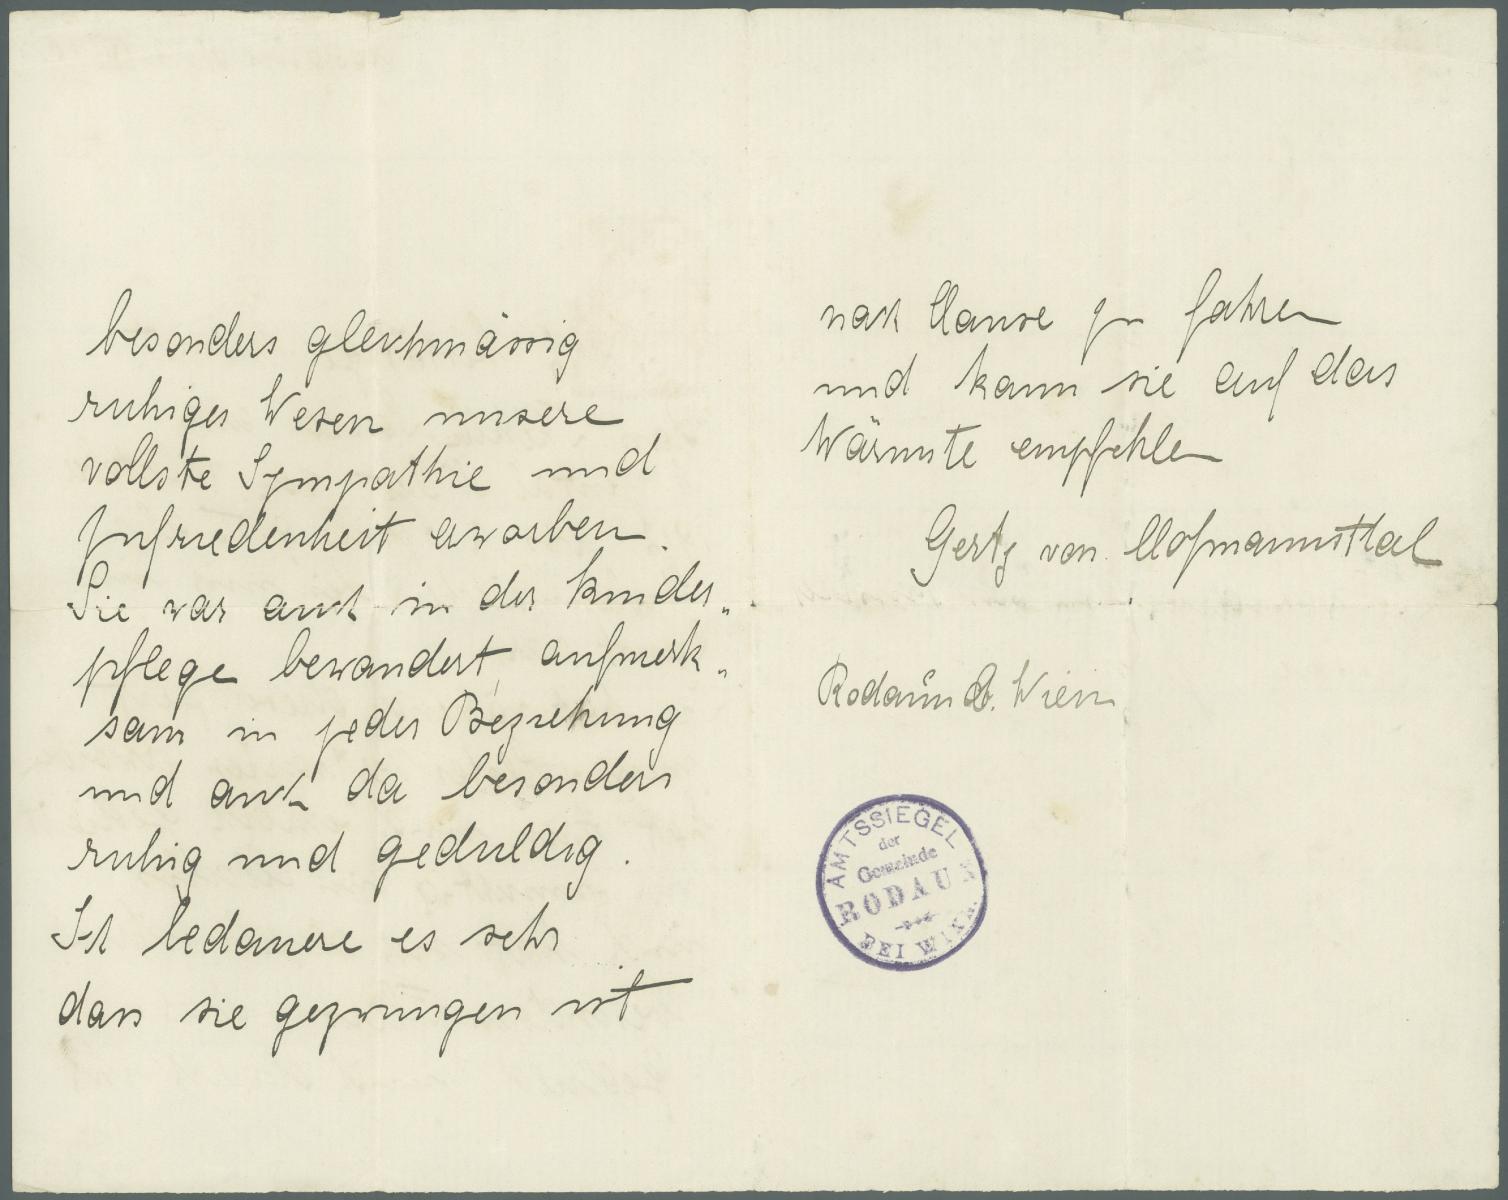 besonders gleichmässig
ruhiges Wesen unsere
vollste Sympathie und
Zufriedenheit erworben.
Sie war auch in der Kinder„
pflege bewandert, aufmerk„
sam in jeder Beziehung
und auch da besonders
ruhig und geduldig.
Ich bedauere es sehr
dass sie gezwungen ist
nach Hause zu fahren
und kann sie auf das
Wärmste empfehlen
Gerty von Hofmannsthal
Rodaun b. Wien
AMTSSIEGEL
der
Gemeinde
RODAUN
BEI WIEN.